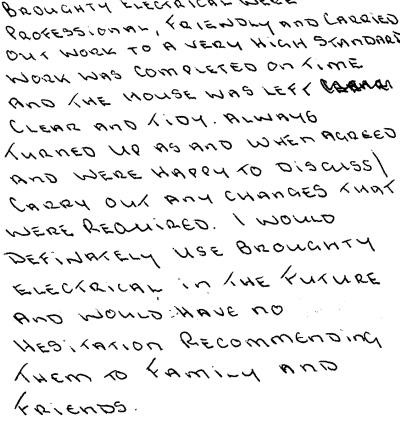 BROUGHTY ELECTRICAL WERE
PROFESSIONAL, FRIENDLY AND CARRIED
OUT WORK TO A VERY HIGH STANDARD
WORK WAS COMPLETED ON TIME
AND THE HOUSE WAS LEFT
CLEAR AND TIDY. ALWAYS
TURNED UP AS AND WHEN AGREED
AND WERE HAPPY TO DISCUSS/
CARRY OUT ANY CHANGES THAT
WERE REQUIRED. I WOULD
DEFINATELY USE BROUGHTY
ELECTRICAL IN THE FUTURE
AND WOULD HAVE NO
HESITATION RECOMMENDING
THEM TO FAMILY AND
FRIENDS.